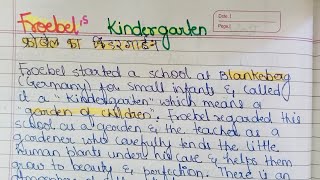 Froebel's Kindergarten
Date :
Page :
फ्रोबेल का किंडरगार्टन
Froebel started a school at Blankeberg
(Germany) for small infants & called
it a "Kindergarten" which means a
"garden of children". Froebel regarded this
school as a garden & the teacher as a
gardener who carefully tends the little
human plants under his care & helps them
grow to beauty & perfection. There is an